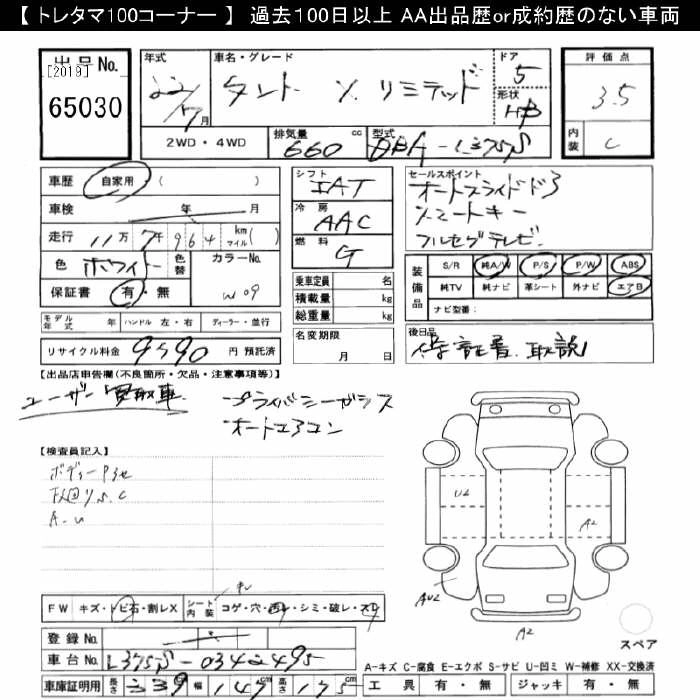 【 トレタマ100コーナー 】 過去100日以上 AA出品歴or成約歴のない車両
出品No.
[2019]
65030
年式
22/7月
車名・グレード
タント X リミテッド
ドア
5
形状
HB
評価点
3.5
内装
C
2WD・4WD
排気量
660 cc
型式
DBA-L375S
車歴 自家用 ( )
車検 年 月
走行 11万7千964 km マイル( )
色 ホワイト
色替
カラーNo.
W09
保証書 有・無
シフト
IAT
冷房
AAC
燃料
G
乗車定員 名
積載量 kg
総重量 kg
名変期限
月 日
セールスポイント
オートスライドドア
スマートキー
フルセグテレビ
装備品
S/R 純A/W P/S P/W ABS
純TV 純ナビ 革シート 外ナビ エアB
ナビ型番:
モデル年式 年 ハンドル 左・右 ディーラー・並行
リサイクル料金 9590 円 預託済
後日品
保証書、取説
【出品店申告欄(不良箇所・欠品・注意事項等)】
ユーザー買取車
・プライバシーガラス
・オートエアコン
【検査員記入】
ボディーPキセ
下回りS.C
A.U
U2
A2
AU2
A2
FW キズ・トビ石・割レX シート内装 コゲ・穴・凹・シミ・破レ・スレ
登録No.
車台No. L375S-0342495
車庫証明用 長さ 339 cm 幅 147 cm 高さ 175 cm
スペア
A-キズ C-腐食 E-エクボ S-サビ U-凹ミ W-補修 XX-交換済
工具 有・無 ジャッキ 有・無